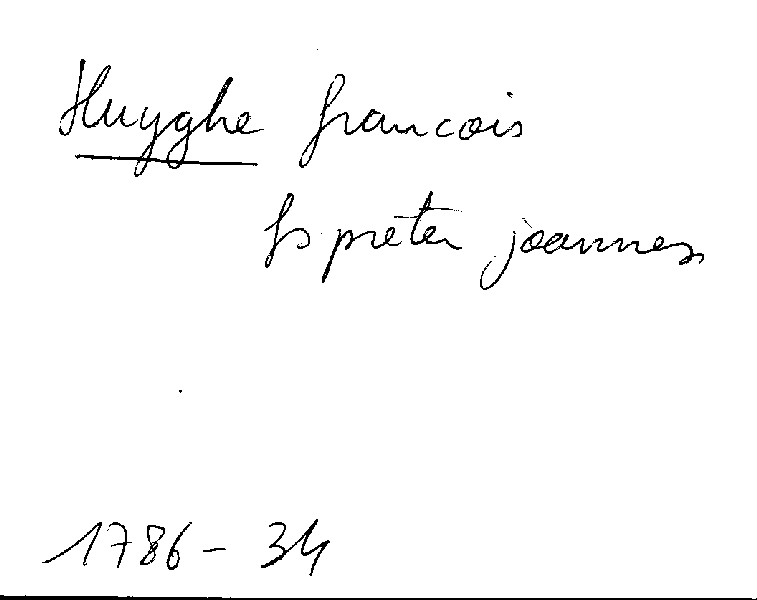 Huyghe francois
fs pieter joannes
1786 - 34